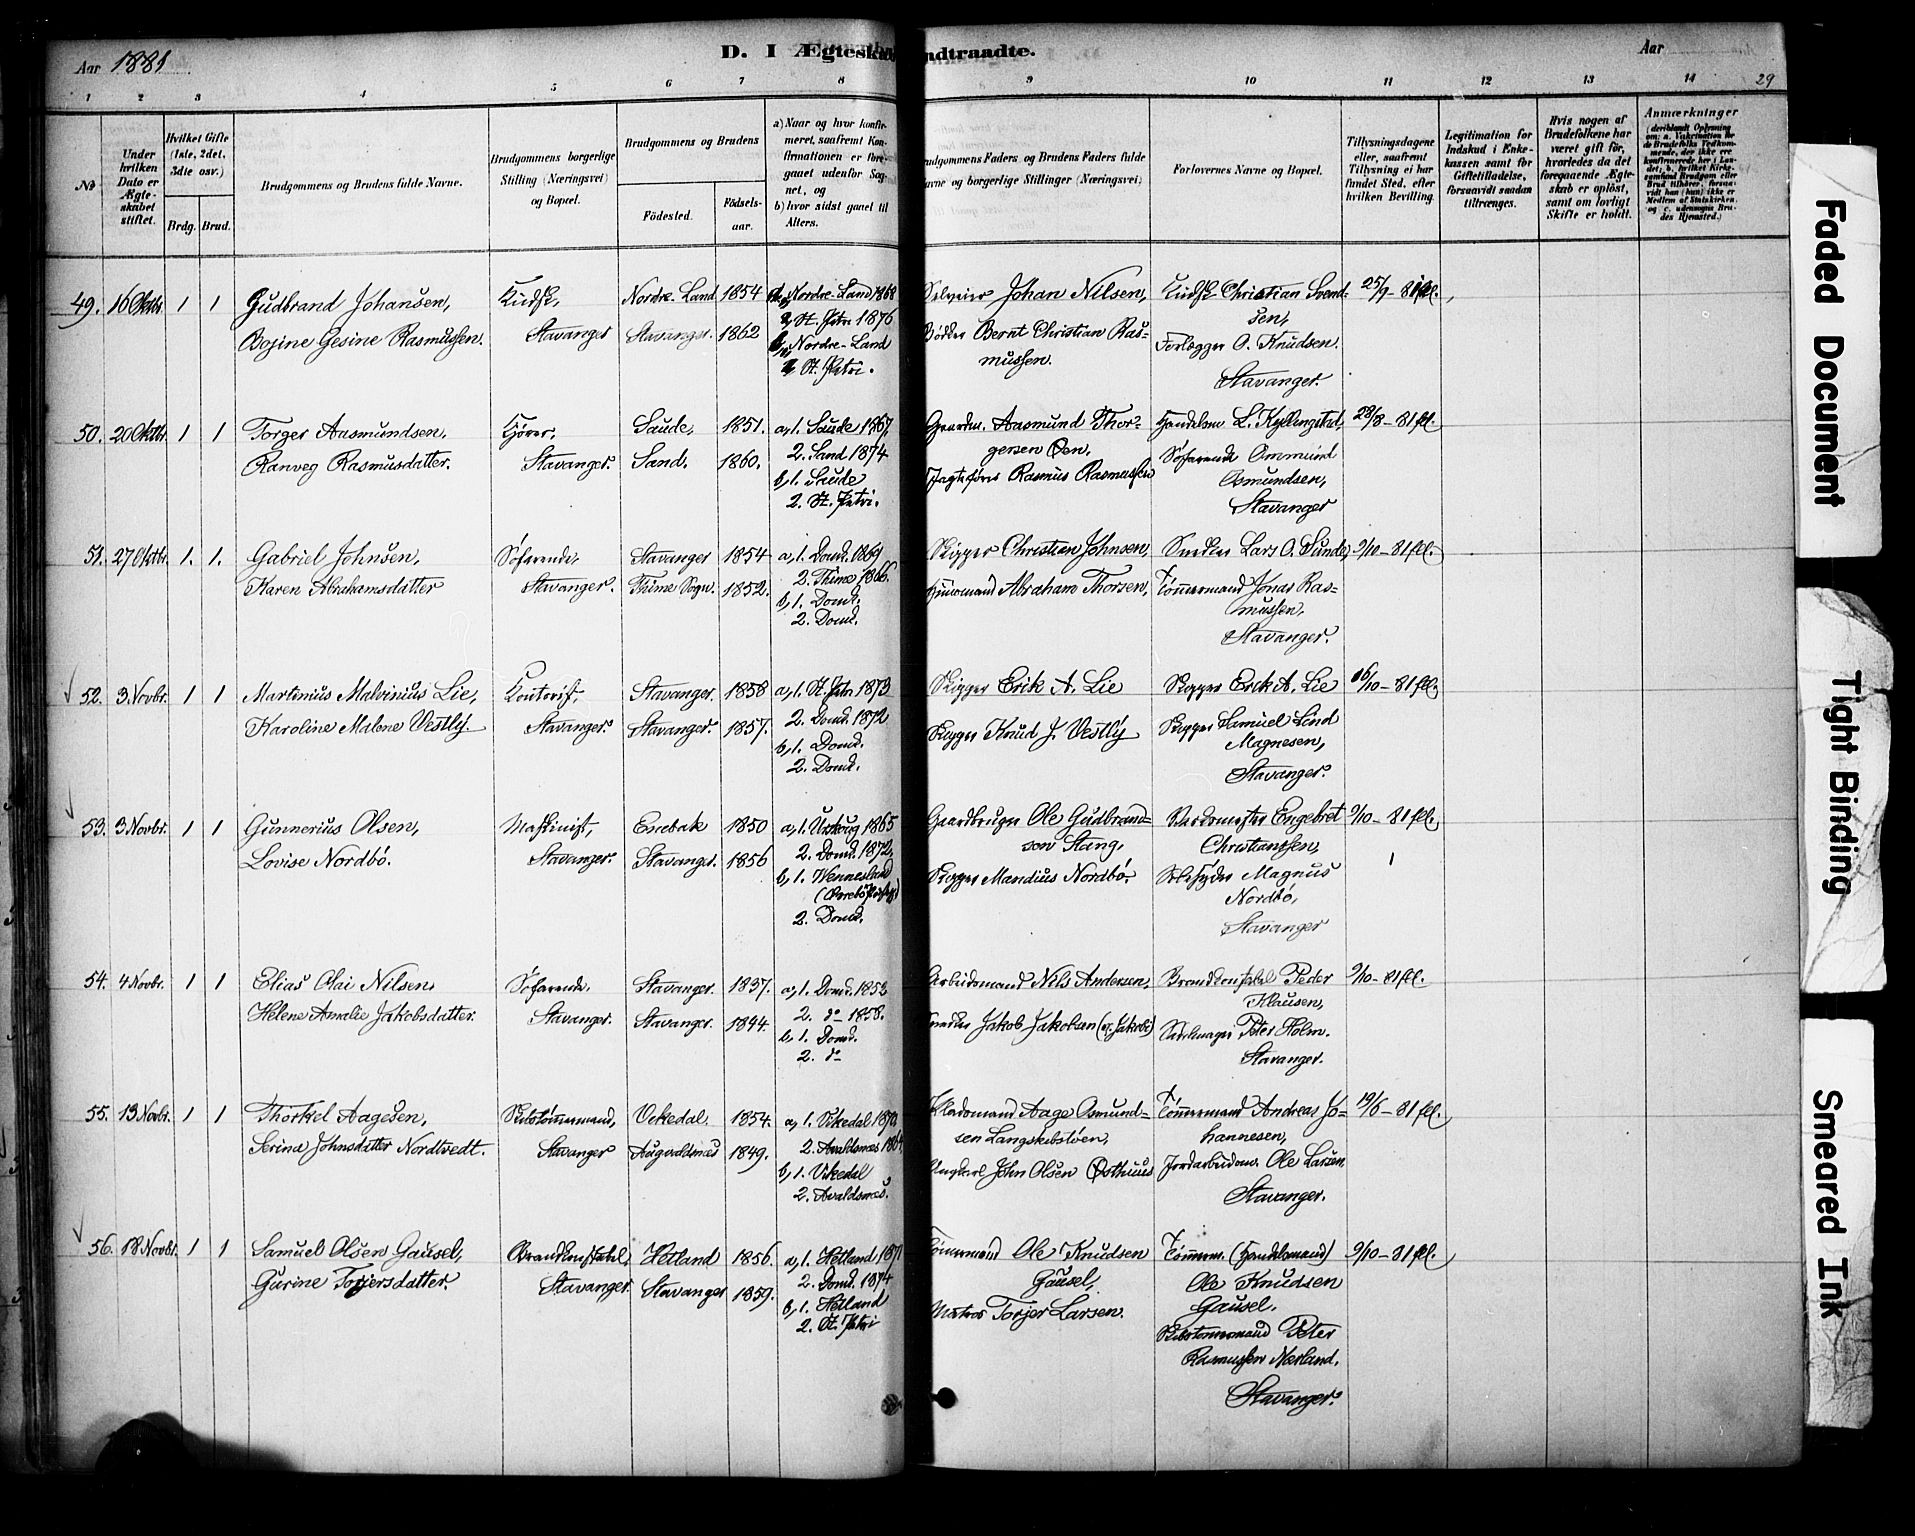 Aar 1881
D. I Ægteska
ndtraadte.
Aar
1 2 3 4 5 6 7 8 9 10 11 12 13 14 29
No
Under hvilken Dato er Ægteskabet stiftet.
Hvilket Gifte (1ste, 2det, 3dte osv.)
Brdg. Brud.
Brudgommens og Brudens fulde Navne.
Brudgommens borgerlige Stilling (Næringsvei) og Bopæl.
Brudgommens og Brudens
Fødested. Fødselsaar.
a) Naar og hvor konfirmeret, saafremt Konfirmationen er foregaaet udenfor Sognet, og
b) hvor sidst gaaet til Alters.
udgommens Faders og Brudens Faders fulde
avne og borgerlige Stillinger (Næringsvei)
Forlovernes Navne og Bopæl.
Tillysningsdagene eller, saafremt Tillysning ei har fundet Sted, efter hvilken Bevilling.
Legitimation for Indskud i Enkekassen samt for Giftetilladelse, forsaavidt saadan tiltrænges.
Hvis nogen af Brudefolkene har været gift før, hvorledes da det foregaaende Ægteskab er opløst, samt om lovligt Skifte er holdt.
Anmærkninger
49. 16 Oktbr. 1 1 Gudbrand Johansen, Kudsk, Nordre-Land 1854 Nordre-Land 1868 Johan Nilsen, Kudsk Christian Svend- 25/9-81 fl.
Bojine Gesine Rasmussen. Stavanger Stavanger. 1862 2, St. Petri 1876 Bødker Bernt Christian Ras- sen,
b, Nordre-Land mussen. Forlægger O. Knudsen.
2, St. Petri. Stavanger.
50. 20 Oktbr. 1 1 Torger Aasmundsen, Kjører, Saude, 1851. a, 1. Saude 1867. Gaardm. Aasmund Thor- Handelsm L. Kyllingstad, 28/8-81 fl.
Ranveg Rasmusdatter. Stavanger. Sand. 1860. 2. Sand 1874 gersen Øen, Søfarende Ommund
b, 1. Saude Jagtefører Rasmus Rasmussen Osmundsen,
2. St. Petri. Stavanger
51. 27 Oktbr. 1. 1. Gabriel Johnsen, Søfarende, Stavanger 1854 a, 1. Domk. 1869 Skipper Christian Johnsen, Snedker Lars O. Sunde, 9/10-81 fl.
Karen Abrahamsdatter Stavanger. Thime Sogn. 1852. 2. Thime 1866. Huusmand Abraham Thorsen, Tømmermand Jonas Ras-
b, 1. Domk. mussen,
2. Domk. Stavanger.
52. 3 Novbr. 1 1 Martinius Malvinius Lie, Kontorist, Stavanger. 1858 a, 1. St. Petri 1873 Skipper Erik A. Lie Skipper Erik A. Lie 16/10-81 fl.
Karoline Malene Vestly. Stavanger. Stavanger. 1857. 2. Domk. 1872 Skipper Knud J. Vestly Skipper Samuel Lind
b, 1. Domk. Magnesen,
2. Domk. Stavanger.
53. 3 Novbr. 1 1 Gunnerius Olsen, Maskinist, Enebak 1850 a, 1. Urskoug 1865 Gaardbruger Ole Gudbrand- Engebret 9/10-81 fl.
Lovise Nordbø. Stavanger. Stavanger. 1856 2. Domk. 1872. son Stang, Christianssen,
b, 1. Wennesland Skipper Mandius Nordbø. Magnus
2. Domk. Nordbø,
Stavanger
54. 4 Novbr. 1 1 Elias Olai Nilsen, Søfarende. Stavanger. 1837. a, 1. Domk. 1853 Arbeidsmand Nils Andersen, Brandkonstabel Peder 9/10-81 fl.
Helene Amalie Jakobsdatter. Stavanger. Stavanger. 1844. 2. do 1858. Jakob Jakobsen Klausen,
b, 1. Domk. Sadelmager Peter Holm.
2. do Stavanger.
55. 13 Novbr. 1 1 Thorkel Aagesen, Skibstømmermand, Vikedal. 1854. a, 1. Vikedal Aage Osmund- Tømmermand Andreas Jo- 19/6-81 fl.
Serina Johnsdatter Nordtvedt. Stavanger Augvaldsnæs 1849. 2. Avaldsnæs 1864. sen Langskibstøen, hannesen,
b, 1. Vikedal Ungkarl John Olsen Østhuus Jordarbeidsm. Ole Larsen.
2. Avaldsnæs. Stavanger.
56. 18 Novbr. 1 1 Samuel Olsen Gausel, Brandkonstabel, Hetland 1856. a, 1. Hetland 1871 Tømmermand Ole Knudsen Tømmerm. (Handelsmand) 9/10-81 fl.
Gurine Torjersdatter. Stavanger. Stavanger 1859. 2. Domk. 1874 Gausel, Ole Knudsen
b, 1. Hetland Matros Torjer Larsen. Gausel.
2. St. Petri Skibstømmermand Peter
Rasmussen Nærland.
Stavanger.
Faded Document
Tight Binding
Smeared Ink